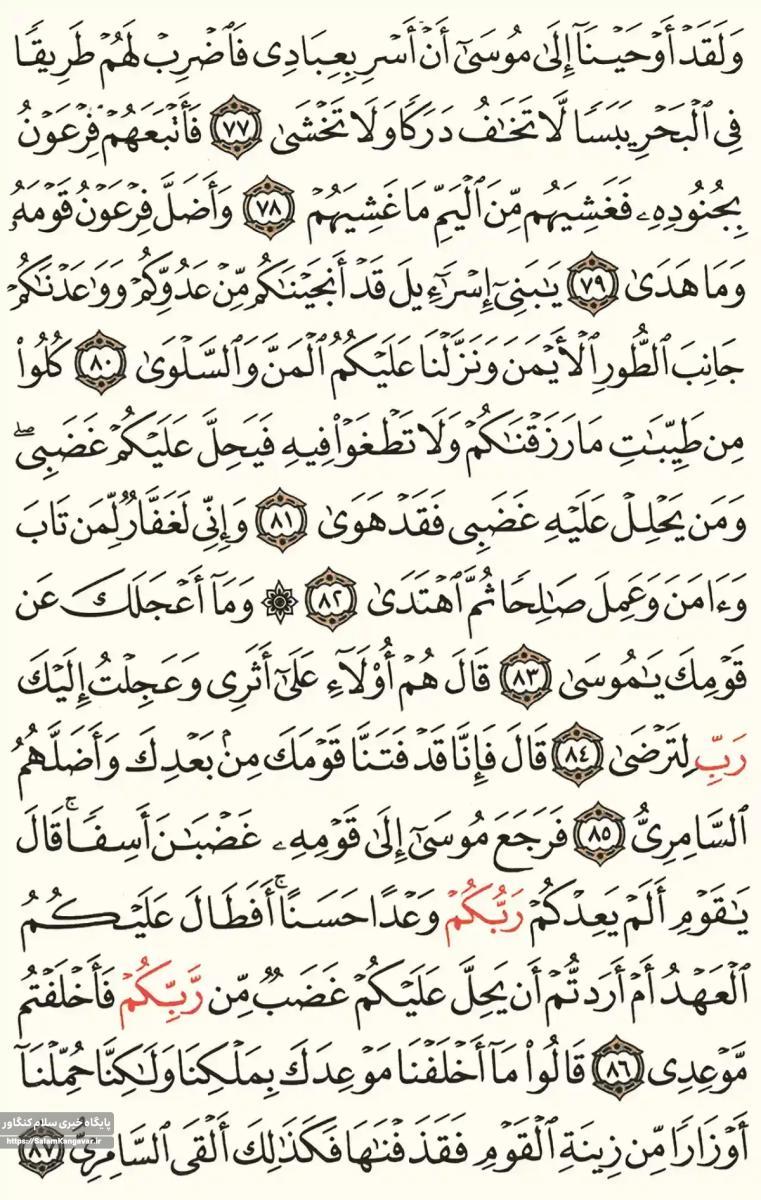 وَلَقَدْ أَوْحَيْنَآ إِلَىٰ مُوسَىٰٓ أَنْ أَسْرِ بِعِبَادِى فَٱضْرِبْ لَهُمْ طَرِيقًا
فِى ٱلْبَحْرِ يَبَسًا لَّا تَخَٰفُ دَرَكًا وَلَا تَخْشَىٰ ٧٧ فَأَتْبَعَهُمْ فِرْعَوْنُ
بِجُنُودِهِۦ فَغَشِيَهُم مِّنَ ٱلْيَمِّ مَا غَشِيَهُمْ ٧٨ وَأَضَلَّ فِرْعَوْنُ قَوْمَهُۥ
وَمَا هَدَىٰ ٧٩ يَٰبَنِىٓ إِسْرَٰٓءِيلَ قَدْ أَنجَيْنَٰكُم مِّنْ عَدُوِّكُمْ وَوَٰعَدْنَٰكُمْ
جَانِبَ ٱلطُّورِ ٱلْأَيْمَنَ وَنَزَّلْنَا عَلَيْكُمُ ٱلْمَنَّ وَٱلسَّلْوَىٰ ٨٠ كُلُوا۟
مِن طَيِّبَٰتِ مَا رَزَقْنَٰكُمْ وَلَا تَطْغَوْا۟ فِيهِ فَيَحِلَّ عَلَيْكُمْ غَضَبِىۖ
وَمَن يَحْلِلْ عَلَيْهِ غَضَبِى فَقَدْ هَوَىٰ ٨١ وَإِنِّى لَغَفَّارٌ لِّمَن تَابَ
وَءَامَنَ وَعَمِلَ صَٰلِحًا ثُمَّ ٱهْتَدَىٰ ٨٢ ۞ وَمَآ أَعْجَلَكَ عَن
قَوْمِكَ يَٰمُوسَىٰ ٨٣ قَالَ هُمْ أُو۟لَآءِ عَلَىٰٓ أَثَرِى وَعَجِلْتُ إِلَيْكَ
رَبِّ لِتَرْضَىٰ ٨٤ قَالَ فَإِنَّا قَدْ فَتَنَّا قَوْمَكَ مِنۢ بَعْدِكَ وَأَضَلَّهُمُ
ٱلسَّامِرِىُّ ٨٥ فَرَجَعَ مُوسَىٰٓ إِلَىٰ قَوْمِهِۦ غَضْبَٰنَ أَسِفًاۚ قَالَ
يَٰقَوْمِ أَلَمْ يَعِدْكُمْ رَبُّكُمْ وَعْدًا حَسَنًاۚ أَفَطَالَ عَلَيْكُمُ
ٱلْعَهْدُ أَمْ أَرَدتُّمْ أَن يَحِلَّ عَلَيْكُمْ غَضَبٌ مِّن رَّبِّكُمْ فَأَخْلَفْتُم
مَّوْعِدِى ٨٦ قَالُوا۟ مَآ أَخْلَفْنَا مَوْعِدَكَ بِمَلْكِنَا وَلَٰكِنَّا حُمِّلْنَآ
أَوْزَارًا مِّن زِينَةِ ٱلْقَوْمِ فَقَذَفْنَٰهَا فَكَذَٰلِكَ أَلْقَى ٱلسَّامِرِىُّ ٨٧
پایگاه خبری سلام کنگاور
https://SalamKangavar.ir